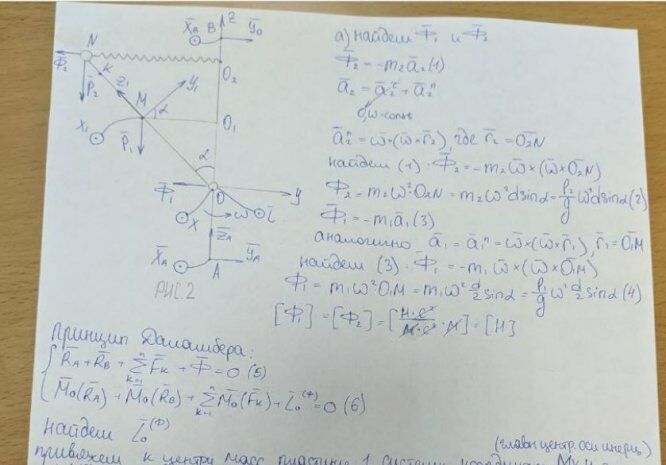 X̄_B B Z Ȳ_B
N
Φ̄_2 K O_2
P̄_2 Z_1 Y_1
M α O_1
X_1
P̄_1 α
Φ̄_1 O Y
X ω L̄
Z̄_A
X̄_A A Ȳ_A
РИС.2
а) найдем Φ̄_1 и Φ̄_2
Φ̄_2 = -m_2 ā_2 (1)
ā_2 = ā_2^τ + ā_2^n
0, ω-const
ā_2^n = ω̄×(ω̄×r̄_2), где r̄_2 = O̅_2N
найдем (1): Φ̄_2 = -m_2 ω̄×(ω̄×O̅_2N)
Φ_2 = m_2 ω²·O_2N = m_2 ω² d sinα = P_2/g ω² d sinα (2)
Φ̄_1 = -m_1 ā_1 (3)
аналогично ā_1 = ā_1^n = ω̄×(ω̄×r̄_1), r̄_1 = O̅_1M
найдем (3): Φ̄_1 = -m_1 ω̄×(ω̄×O̅_1M)
Φ_1 = m_1 ω² O_1M = m_1 ω² d/2 sinα = P_1/g ω² d/2 sinα (4)
[Φ_1] = [Φ_2] = [Н·с²/м·с² · м] = [Н]
Принцип Даламбера:
{ R̄_A + R̄_B + Σ_{k=1}^{n} F̄_k + Φ̄ = 0 (5)
M̄_0(R̄_A) + M̄_0(R̄_B) + Σ_{k=1}^{n} M̄_0(F̄_k) + L̄_0^(Φ) = 0 (6)
Найдем L̄_0^(Φ)
(главн центр. оси инерц)
привяжем к центру масс пластине 1 систему координат